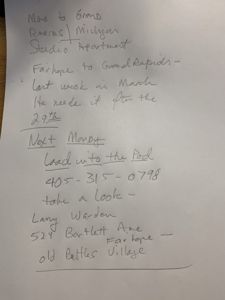 Move to Grand
Rapids / Michigan
Studio Apartment
Fairhope to Grand Rapids -
Last week in March
He needs it after the
29th
Next Monday
Load into the Pod
405-315-0798
take a look -
Larry Warden
521 Bartlett Ave
Fairhope -
old Battles Village